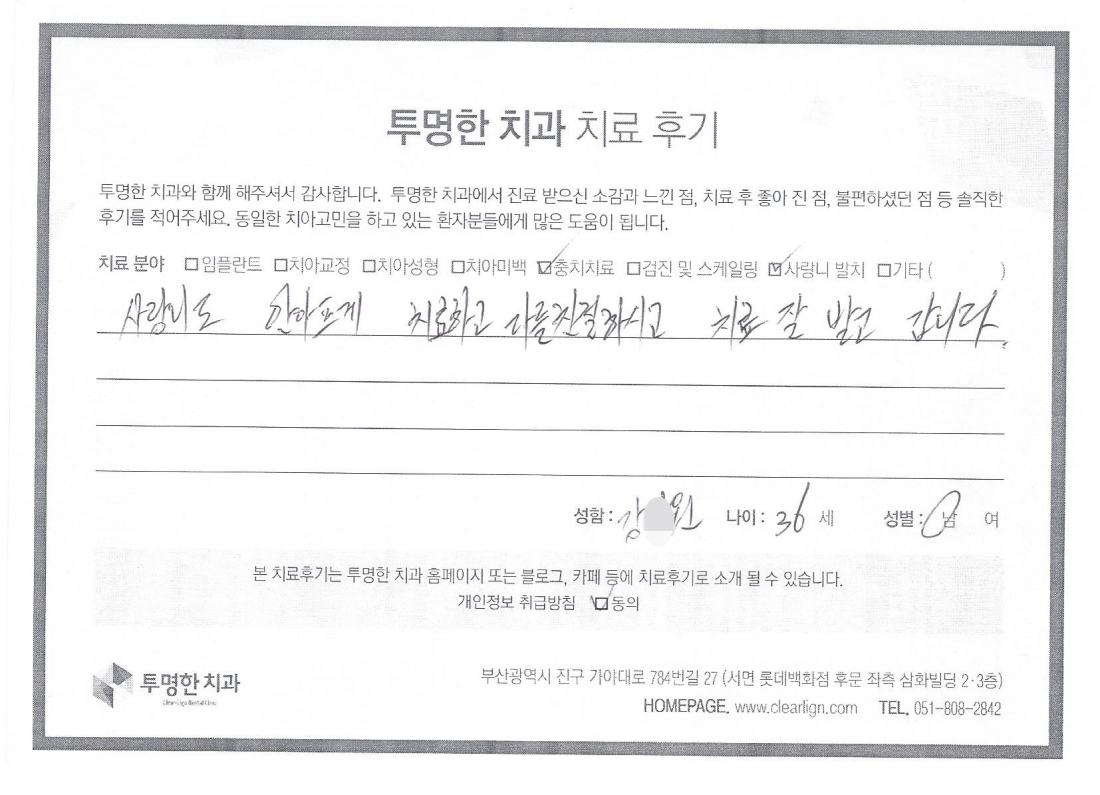 투명한 치과 치료 후기
투명한 치과와 함께 해주셔서 감사합니다. 투명한 치과에서 진료 받으신 소감과 느낀 점, 치료 후 좋아 진 점, 불편하셨던 점 등 솔직한
후기를 적어주세요. 동일한 치아고민을 하고 있는 환자분들에게 많은 도움이 됩니다.
치료 분야 □임플란트 □치아교정 □치아성형 □치아미백 ☑충치치료 □검진 및 스케일링 ☑사랑니 발치 □기타 ( )
사랑니도 안아프게 치료하고 다들친절하시고 치료 잘 받고 갑니다.
성함 : 강 원 나이 : 36 세 성별 : 남 여
본 치료후기는 투명한 치과 홈페이지 또는 블로그, 카페 등에 치료후기로 소개 될 수 있습니다.
개인정보 취급방침 ☑동의
투명한 치과
부산광역시 진구 가야대로 784번길 27 (서면 롯데백화점 후문 좌측 삼화빌딩 2·3층)
HOMEPAGE. www.clearlign.com TEL. 051-808-2842